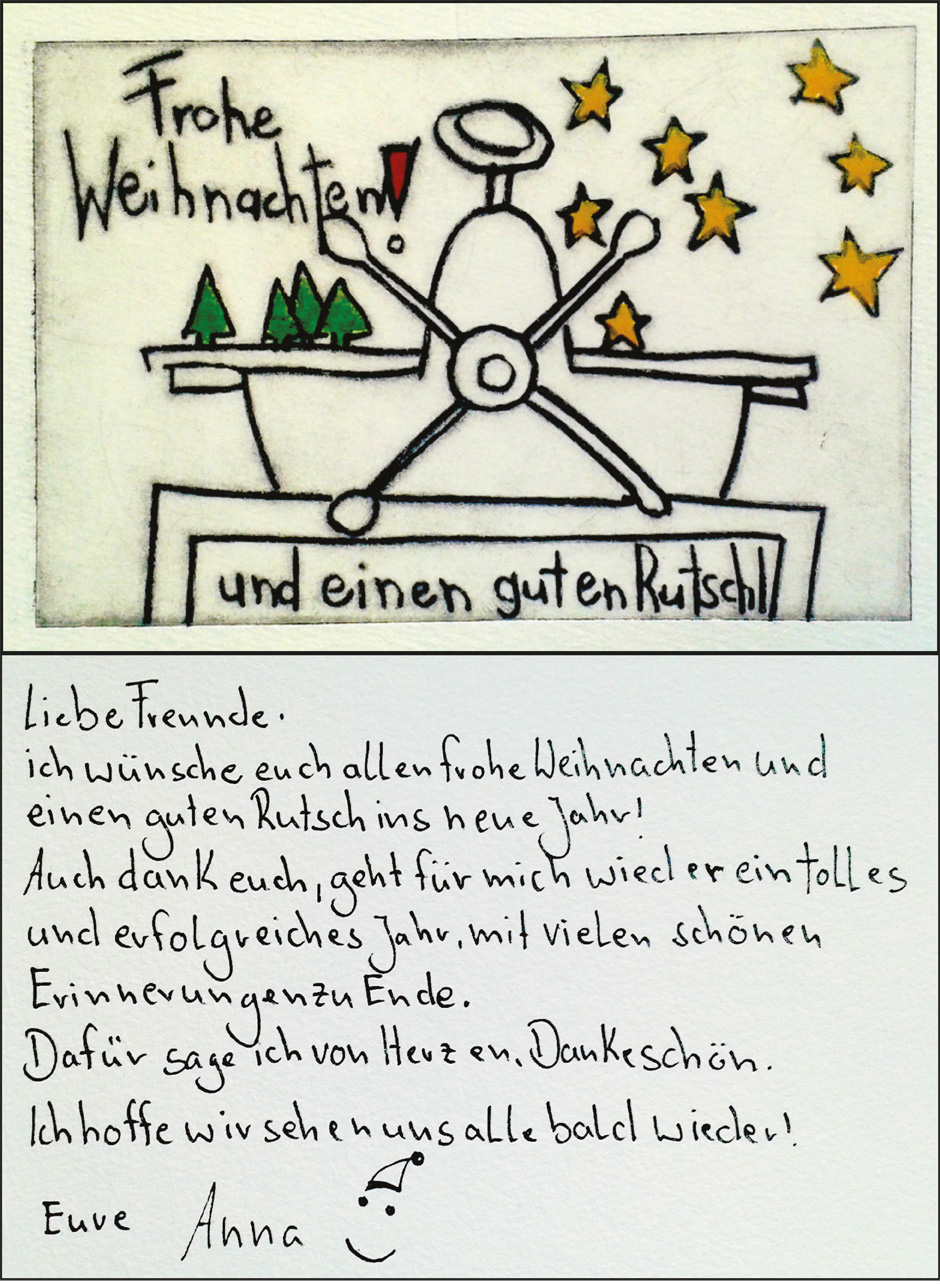 Frohe
Weihnachten!
und einen guten Rutsch!
Liebe Freunde.
ich wünsche euch allen frohe Weihnachten und
einen guten Rutsch ins neue Jahr!
Auch dank euch, geht für mich wieder ein tolles
und erfolgreiches Jahr, mit vielen schönen
Erinnerungen zu Ende.
Dafür sage ich von Herzen, Dankeschön.
Ich hoffe wir sehen uns alle bald wieder!
Eure Anna